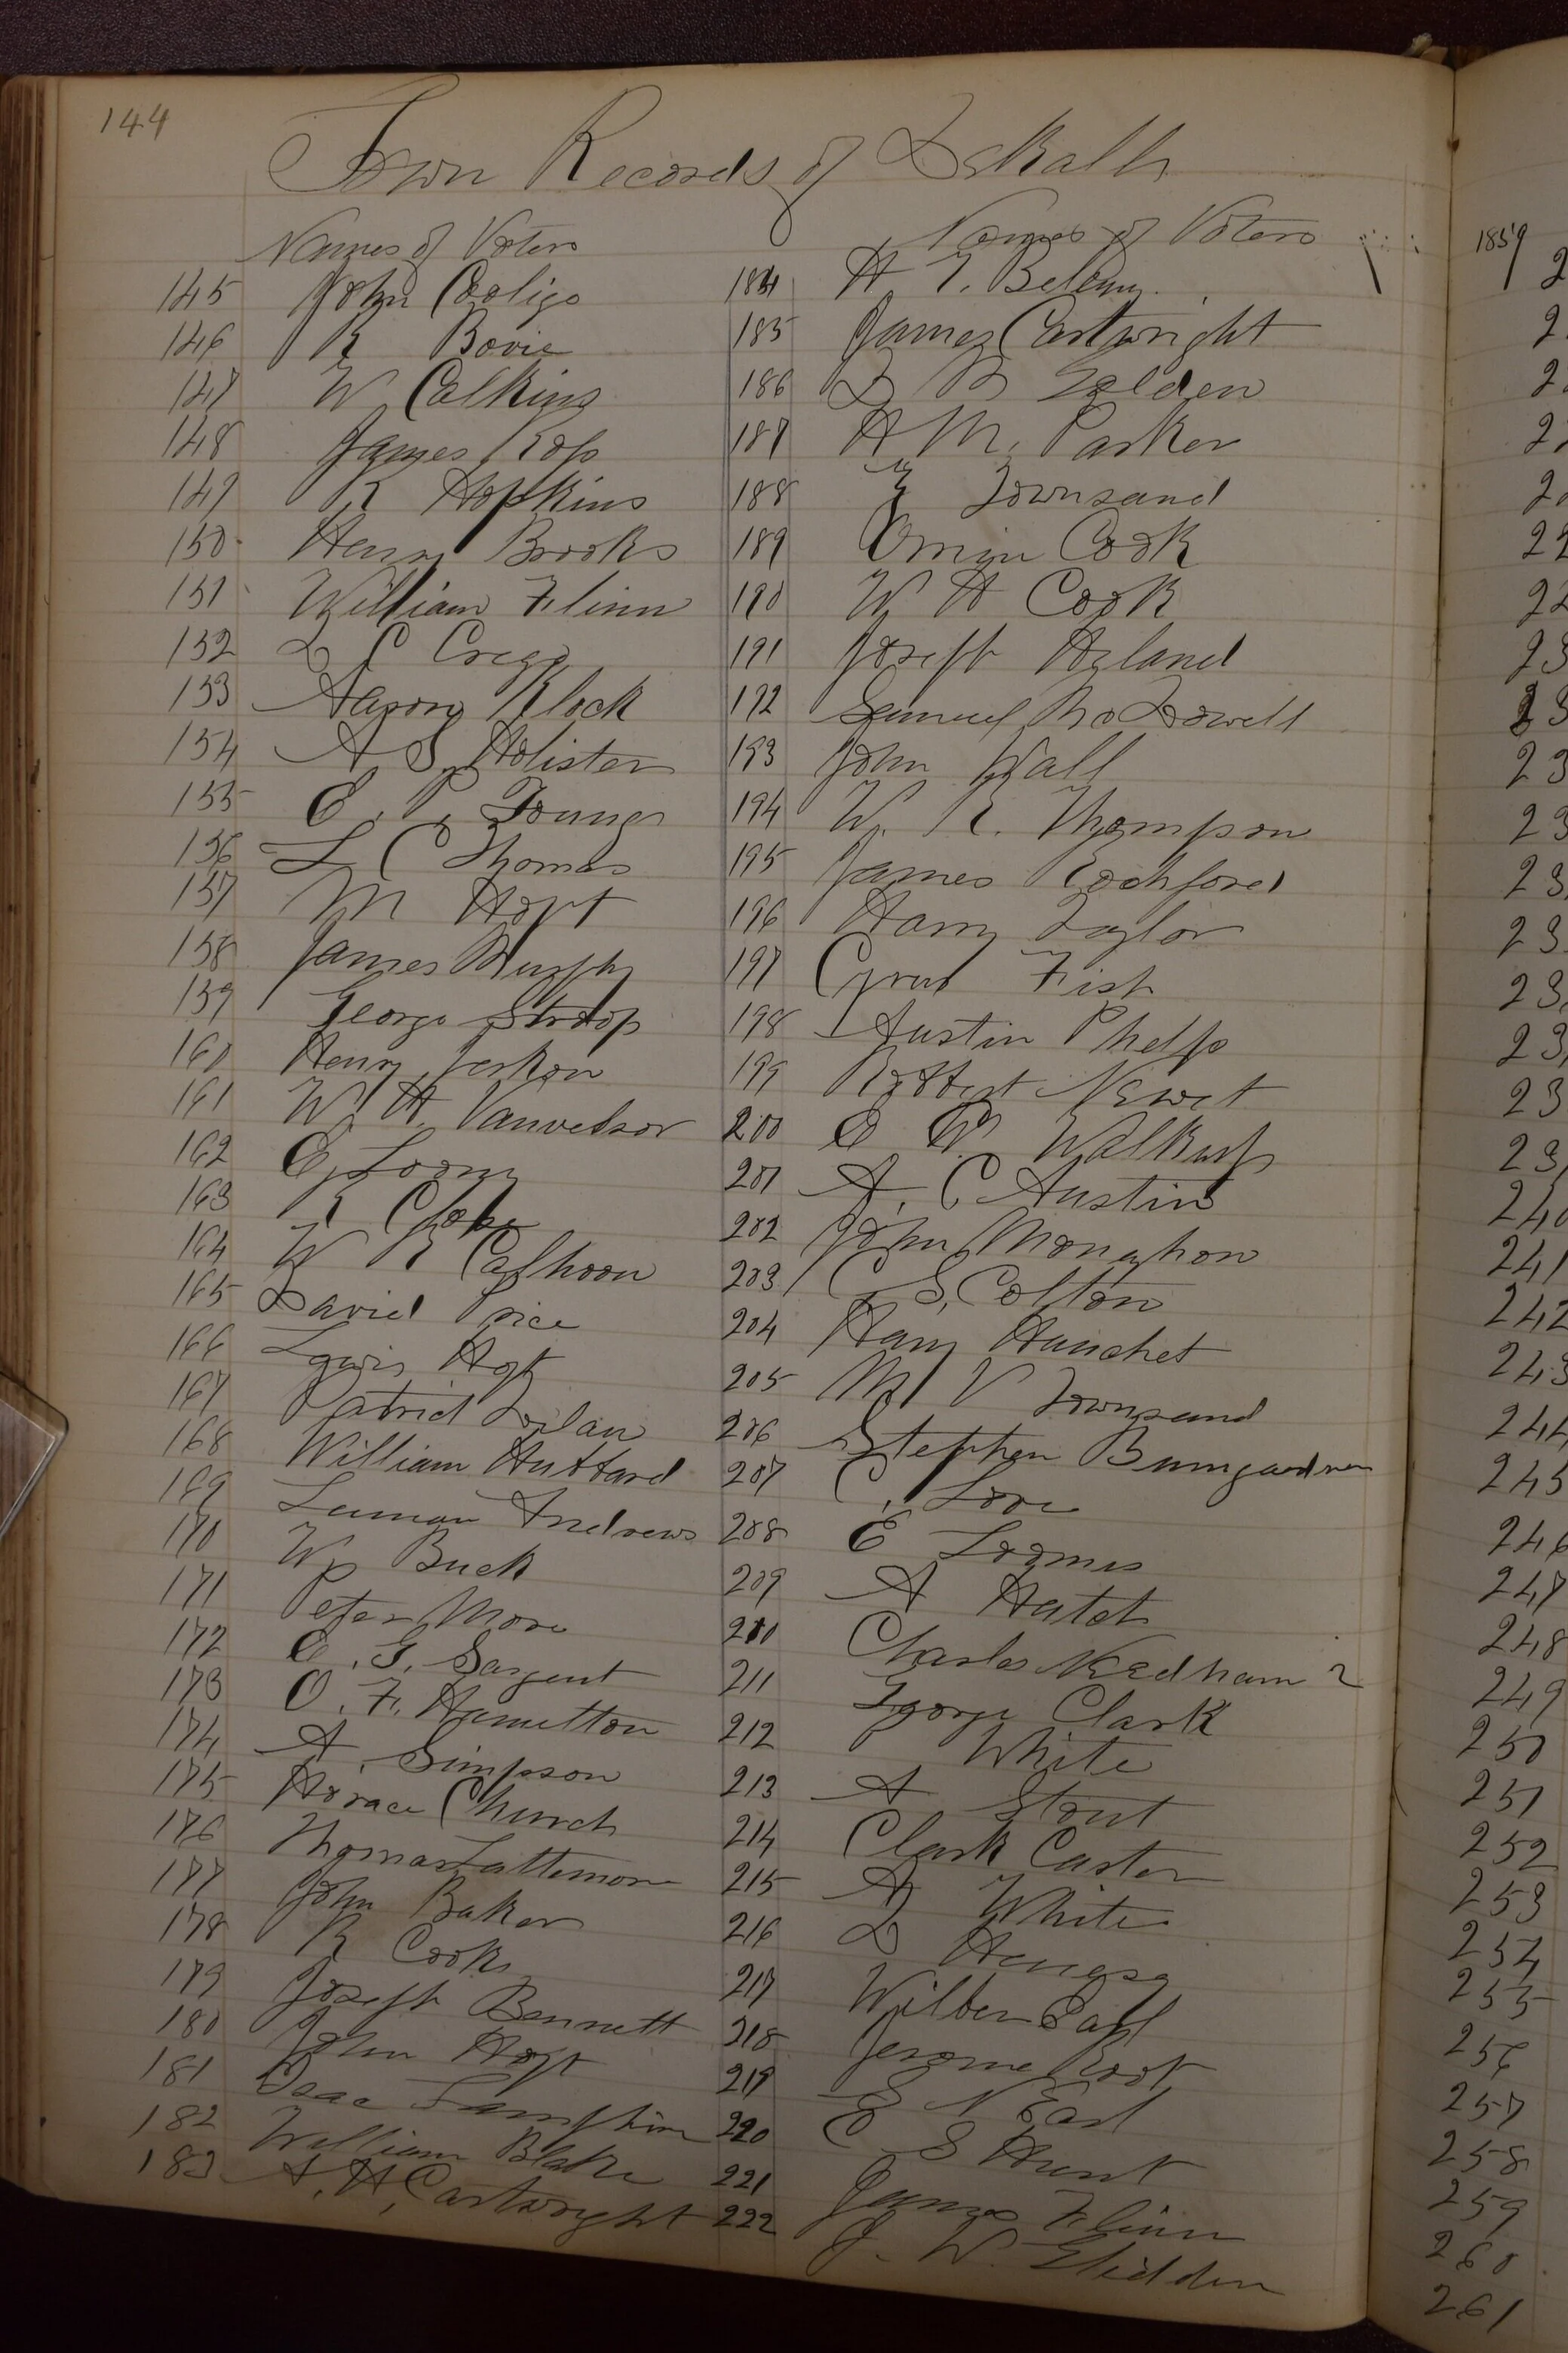 144
Town Records of DeKalb
Names of Voters
145 John Cooligo
146 R Bovie
147 W Calkins
148 James Ross
149 R Hopkins
150 Henry Brooks
151 William Flinn
152 L C Cregg
153 Aaron Klock
154 A S Holister
155 E. P. Young
156 L C Thomas
157 M Hoyt
158 James Murphy
159 George Stroop
160 Henry
161 W. H Vanvelsor
162 E,
163 R
164 W R Calhoon
165 David Price
166 Lewis Hoyt
167 Patrick Dolan
168 William Hubbard
169 Luman Andrews
170 Wm Buck
171 Peter More
172 E. G. Sargent
173 O. F. Hamelton
174 A. Simpson
175 Horace Church
176 Thomas Lattemore
177 John Baker
178 R Cooks
179 Joseph Bennett
180 John Hoyt
181 Isaac
182 William Blake
183 A. H, Cartwright
Names of Voters
184 H E. Belamy.
185 James Cartwright
186 D B Golden
187 H M. Parker
188 E Townsand
189 Orrin Cook
190 W H Cook
191 Joseph Hyland
192 Samuel McDowell
193 John Wall
194 W. R. Thompson
195 James Rochford
196 Harry Taylor
197 Cyrus Fish
198 Austin Phelps
199 Robbert Newet
200 E W Walkup
201 A. C Austin
202 John Monahon
203 C S. Colton
204 Harry Hanchet
205 M V Townsand
206 Stephen Bumgardner
207 C. Love
208 E Loomis
209 A Hatch
210 Charles Needham 2
211 George Clark
212 White
213 A Stout
214 Clark Caster
215 A White
216 D
217 Wilber Earl
218 Jerome Root
219 S N Earl
220 E S Hunt
221 James Flinn
222 J. W. Glidden
1859
240
241
242
243
244
245
246
247
248
249
250
251
252
253
254
255
256
257
258
259
260
261